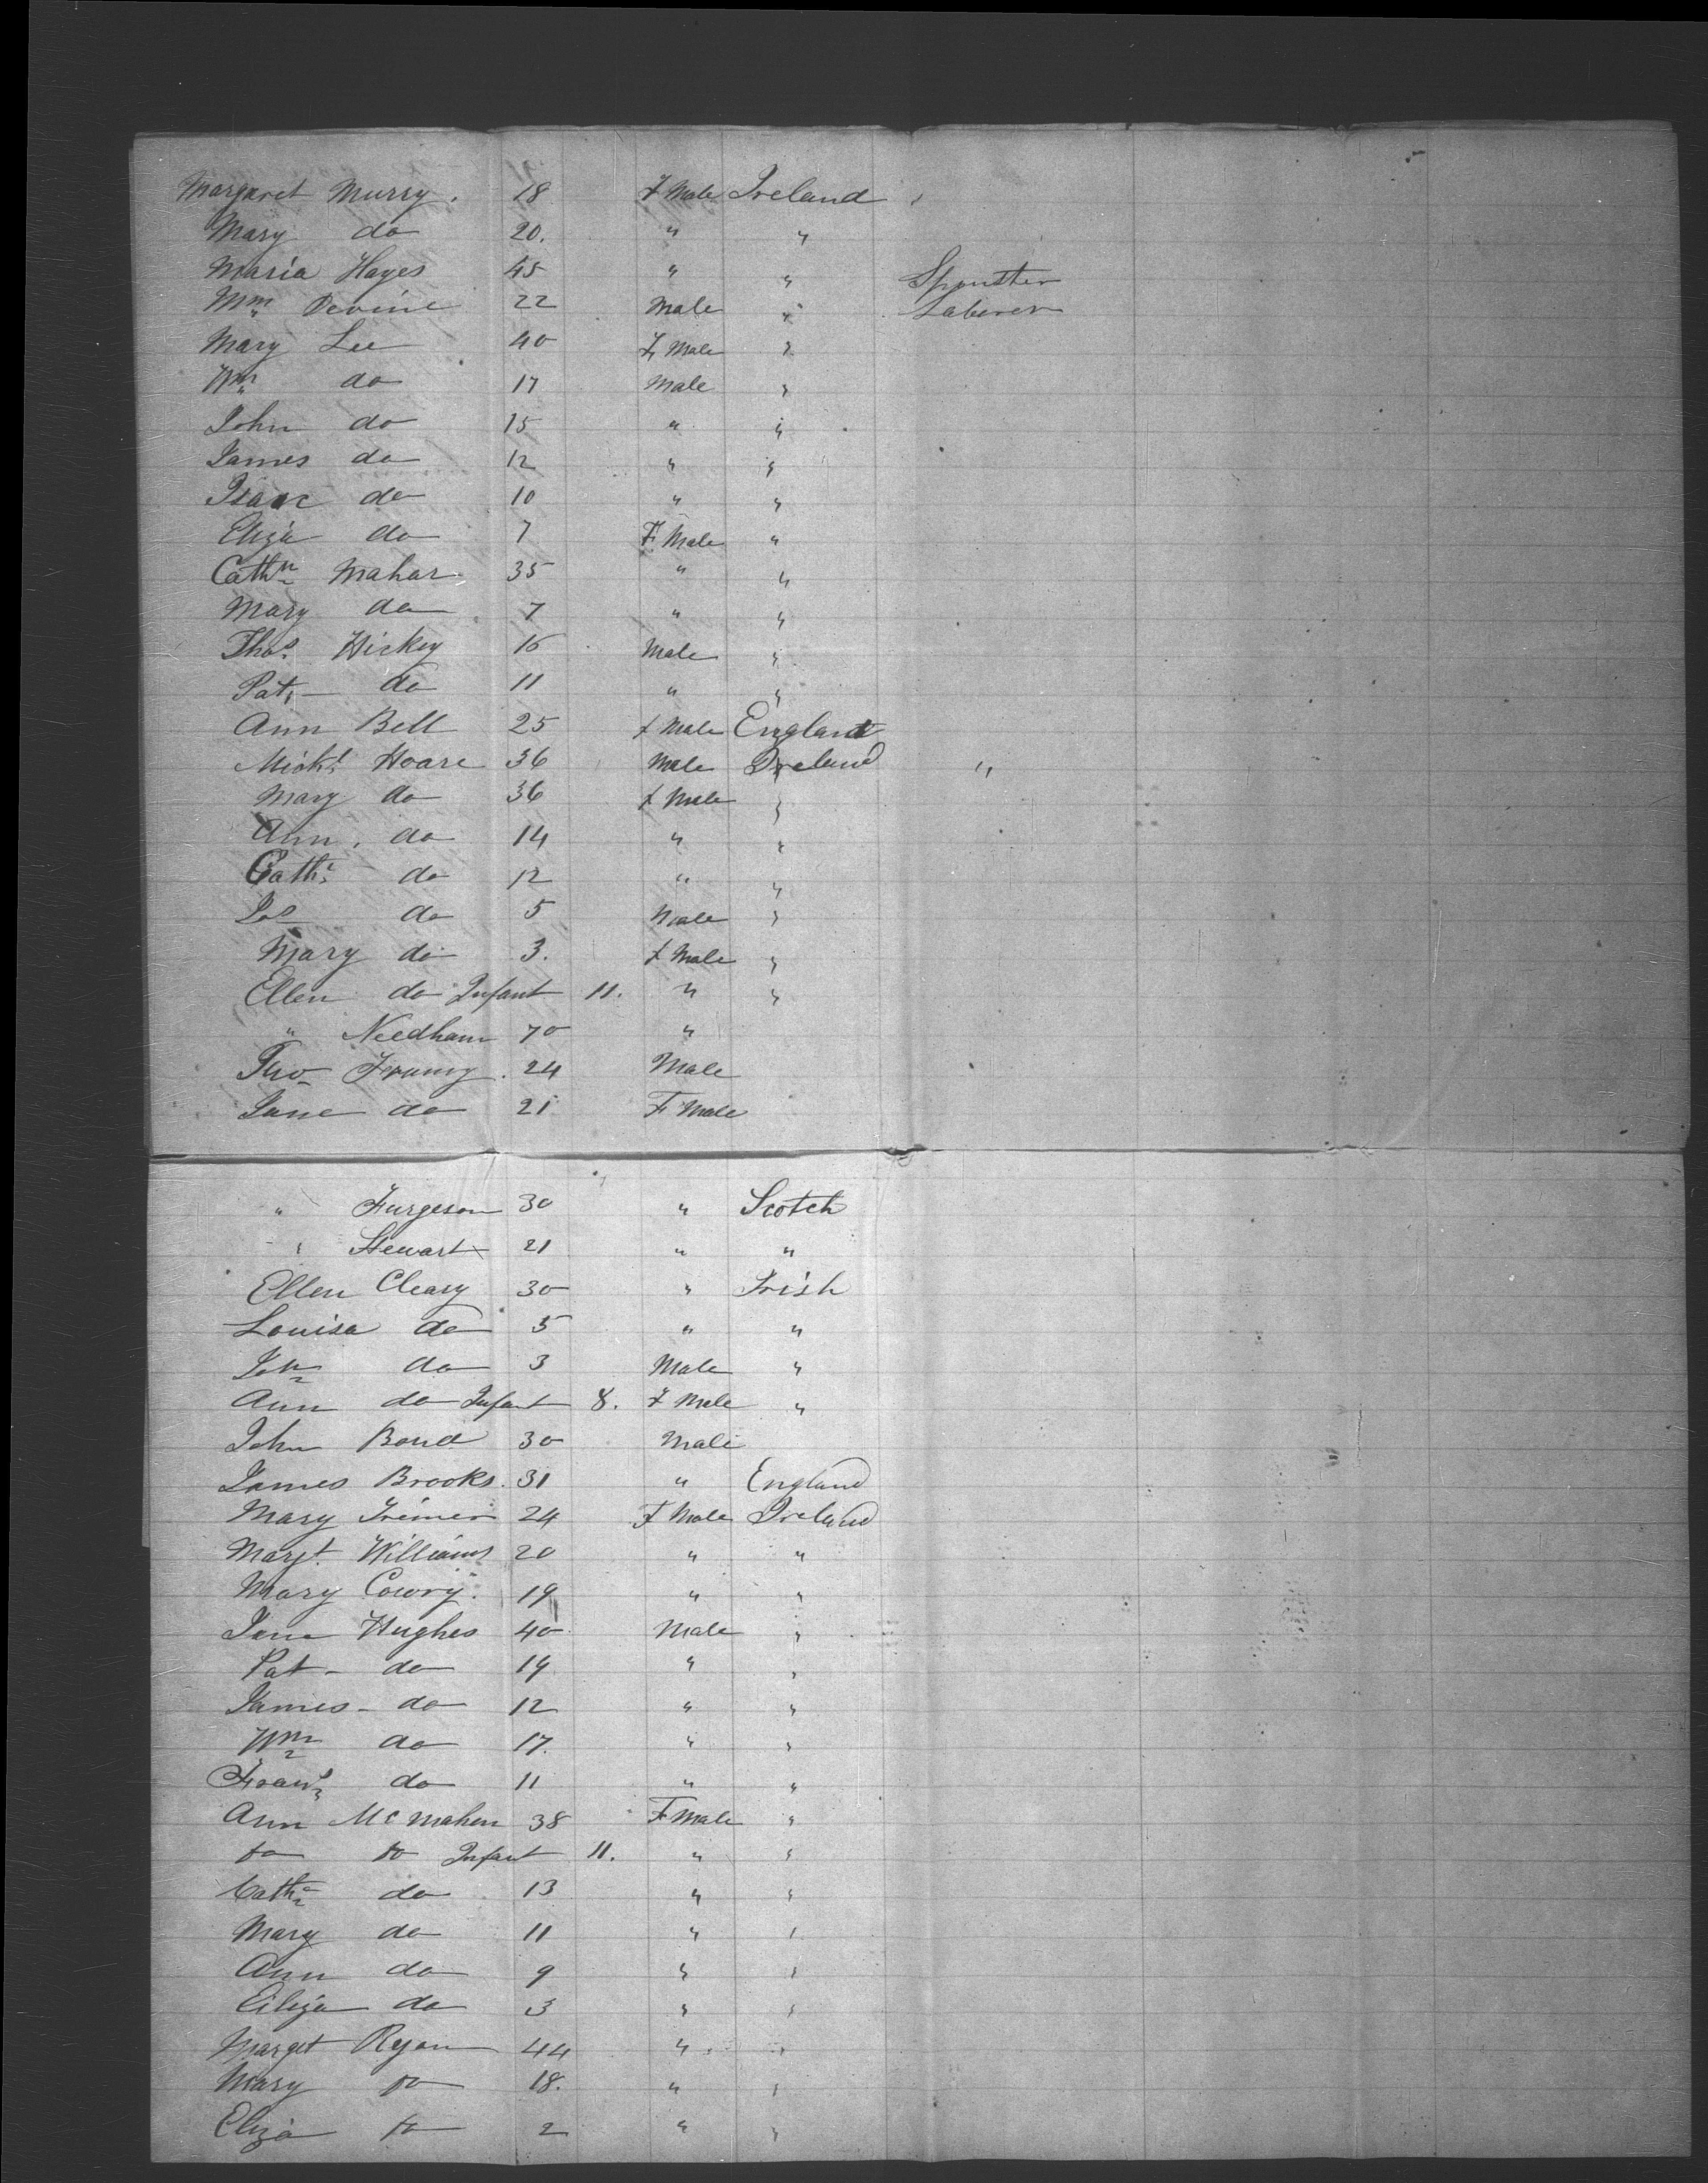 Margaret Murry. 18 F Male Ireland
Mary do 20. " "
Maria Hayes 45 " " Spinster
Wm Devine 22 Male " Laberer
Mary Lee 40 F Male "
Wm do 17 Male "
John do 15 " "
James do 12 " "
Isaac do 10 " "
Eliza do 7 F Male "
Cathn Mahar 35 " "
Mary do 7 " "
Thos Hickey 16 Male "
Pat do 11 " "
Ann Bell 25 F Male England
Michl Hoare 36 Male Ireland "
Mary do 36 F Male "
Ann. do 14 " "
Cath do 12 " "
Jos do 5 Male "
Mary do 3. F Male "
Ellen do Infant 11. " "
" Needham 70 "
Tho 24 Male
Jane do 21 F Male
" Furgeson 30 " Scotch
" Stewart 21 " "
Ellen Cleary 30 " Irish
Louisa do 5 " "
Jon do 3 Male "
Ann do Infant 8. F Male "
John Bond 30 Male
James Brooks. 31 " England
Mary 24 F Male Ireland
Margt. Williams 20 " "
Mary Cowry. 19 " "
Hughes 40 Male "
Pat - do 19 " "
James - do 12 " "
Wm do 17. " "
Frans do 11 " "
Ann McMahon 38 F Male "
do do Infant 11. " "
Cathn do 13 " "
Mary do 11 " "
Ann do 9 " "
Eliza do 3 " "
Marget Ryan 44 " "
Mary do 18. " "
Eliza do 2 " "